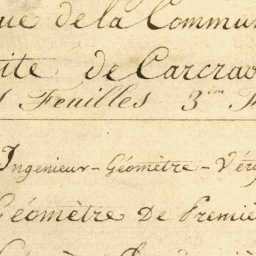 que de la Commun
ite de Carcrav
Feuilles 3.me F
Ingenieur-Géomètre-Véri
Géomètre De Premiè